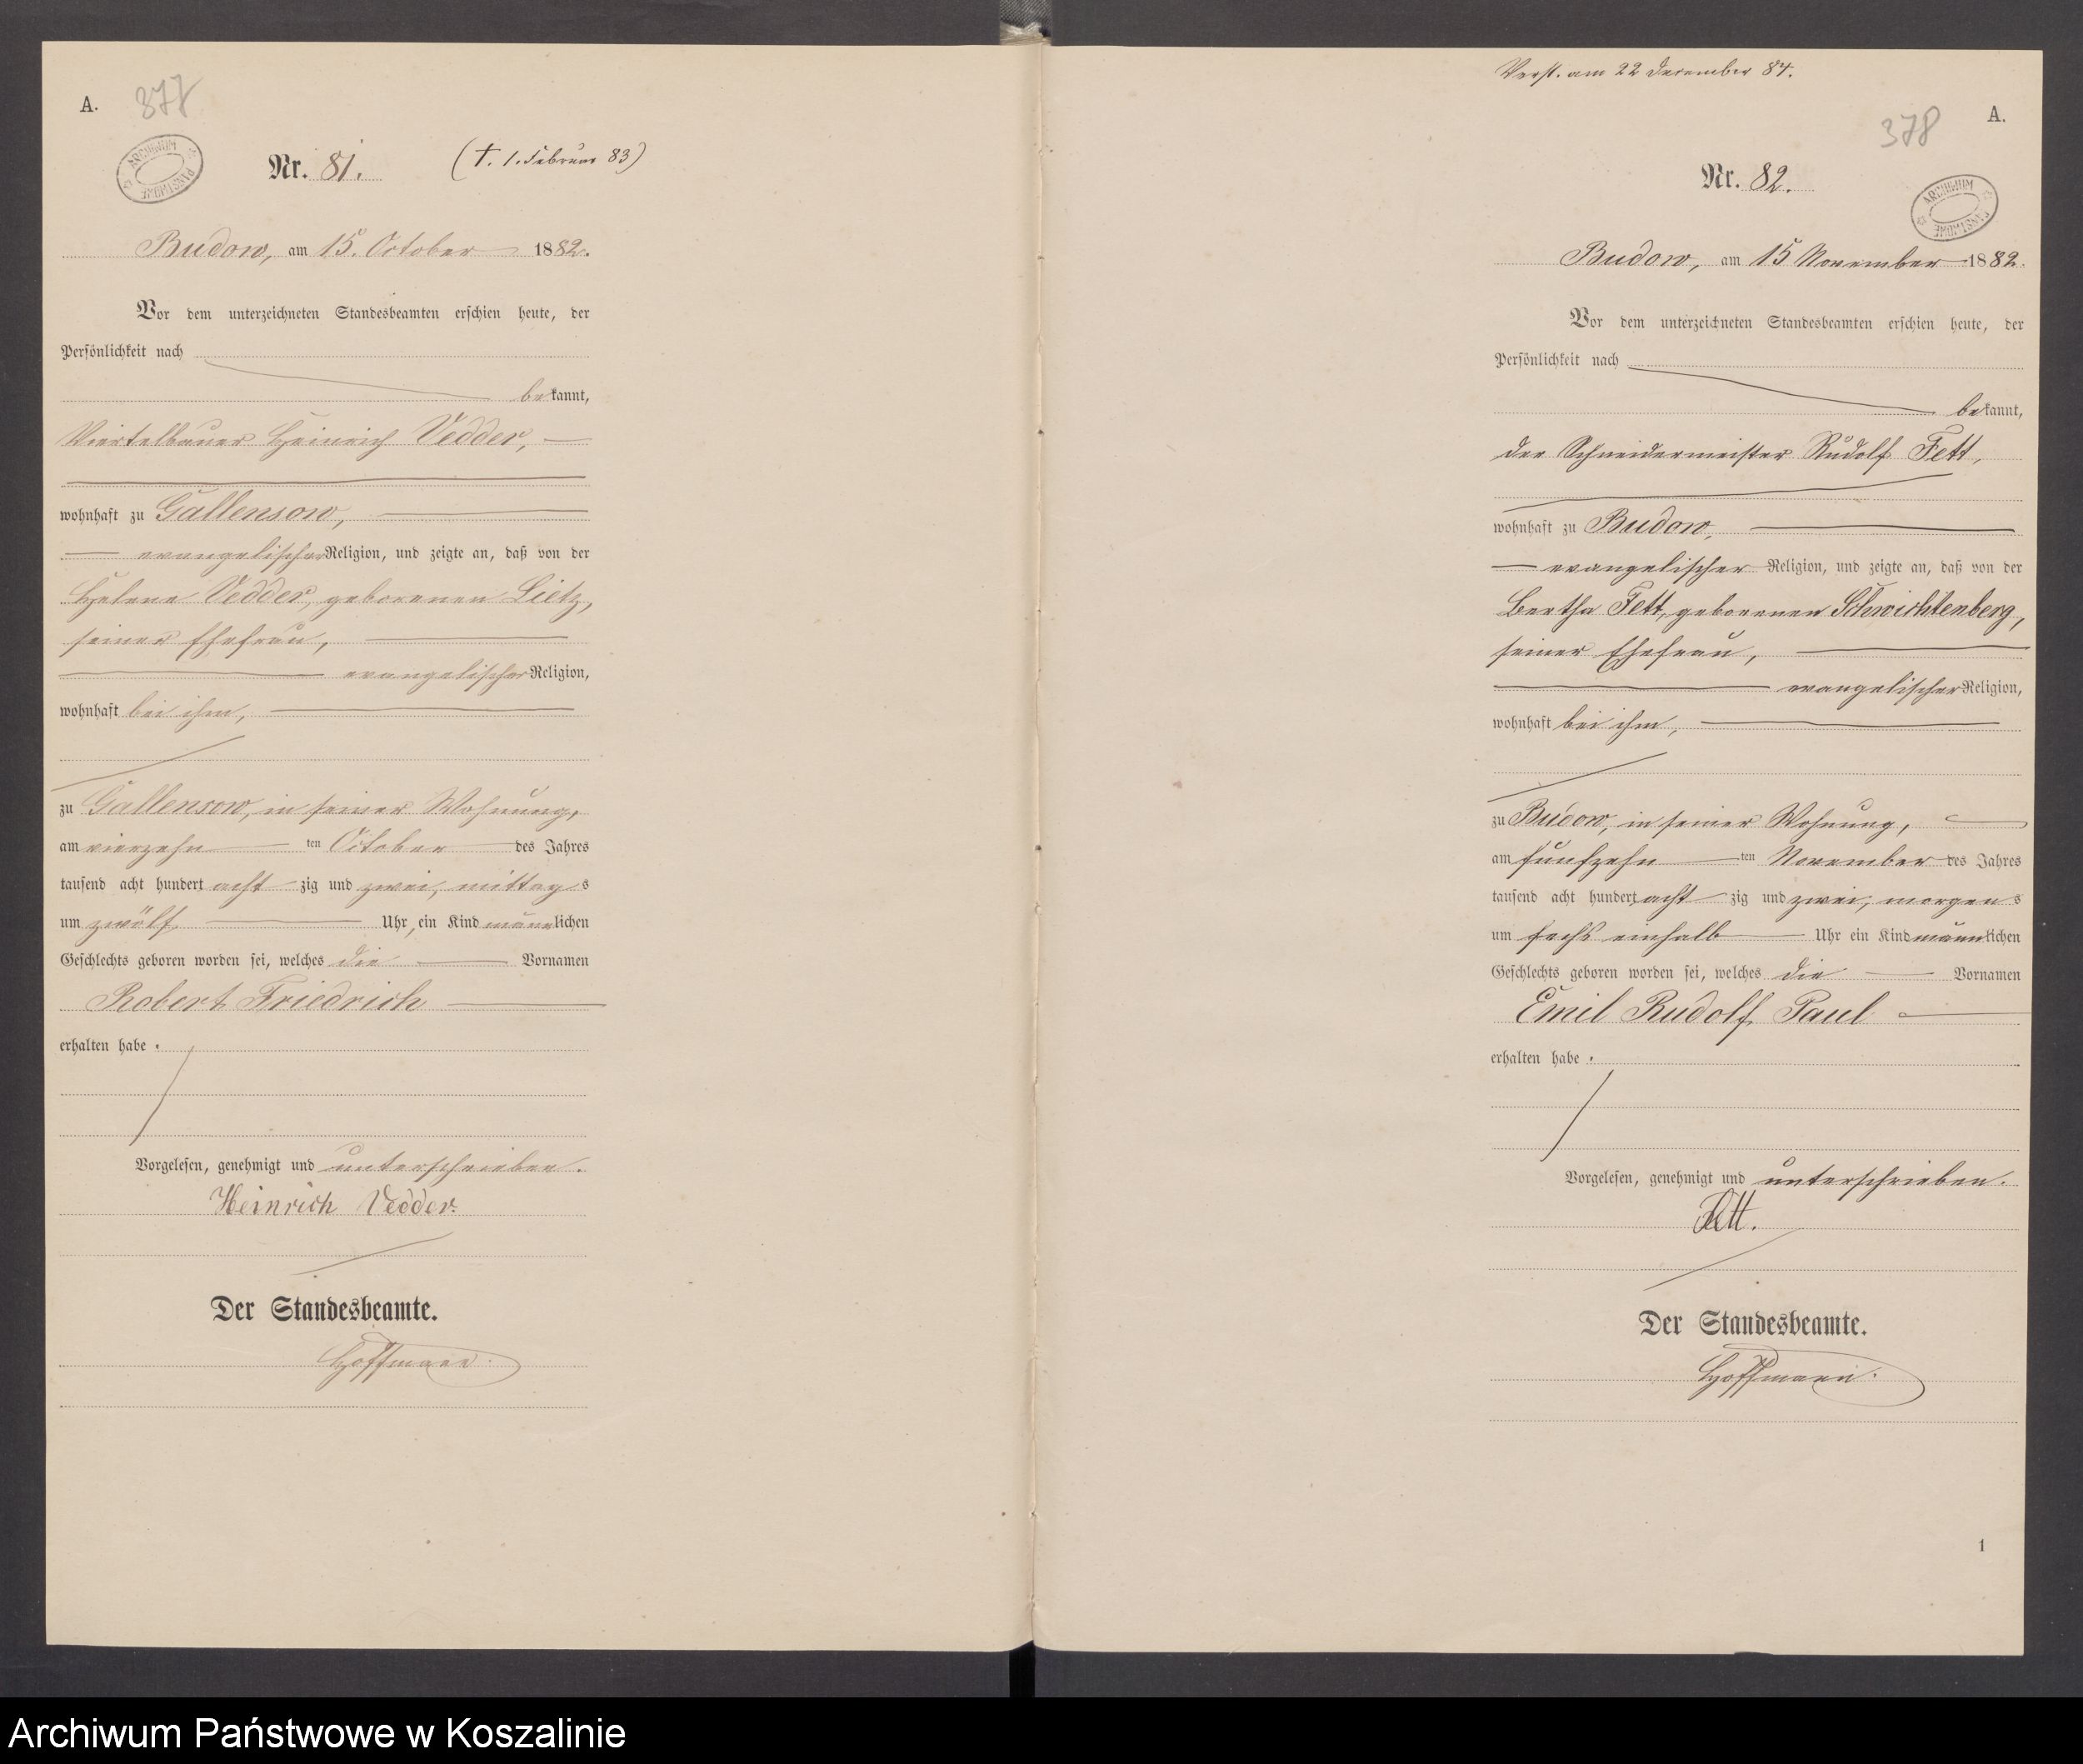 A.
377
ARCHIWUM PAŃSTWOWE
Nr. 81.
(†. 1. Februar 83)
Budow, am 15. October 1882.
Vor dem unterzeichneten Standesbeamten erschien heute, der
Persönlichkeit nach
bekannt,
Viertelbauer Heinrich Vedder,
wohnhaft zu Gallensow,
evangelischer Religion, und zeigte an, daß von der
Helene Vedder, geborenen Lietz,
seiner Ehefrau,
evangelischer Religion,
wohnhaft bei ihm,
zu Gallensow, in seiner Wohnung,
am vierzehn ten October des Jahres
tausend acht hundert acht zig und zwei, mittags
um zwölf Uhr, ein Kind männlichen
Geschlechts geboren worden sei, welches die Vornamen
Robert Friedrich
erhalten habe.
Vorgelesen, genehmigt und unterschrieben.
Heinrich Vedder.
Der Standesbeamte.
Hoffmann.
Verst. am 22 Dezember 84.
378
A.
Nr. 82.
ARCHIWUM PAŃSTWOWE
Budow, am 15 November 1882.
Vor dem unterzeichneten Standesbeamten erschien heute, der
Persönlichkeit nach
bekannt,
der Schneidermeister Rudolf Fett,
wohnhaft zu Budow,
evangelischer Religion, und zeigte an, daß von der
Bertha Fett, geborenen Schwichtenberg,
seiner Ehefrau,
evangelischer Religion,
wohnhaft bei ihm,
zu Budow, in seiner Wohnung,
am fünfzehn ten November des Jahres
tausend acht hundert acht zig und zwei, morgens
um sechs einhalb Uhr ein Kind männlichen
Geschlechts geboren worden sei, welches die Vornamen
Emil Rudolf Paul
erhalten habe.
Vorgelesen, genehmigt und unterschrieben.
Fett.
Der Standesbeamte.
Hoffmann.
1
Archiwum Państwowe w Koszalinie